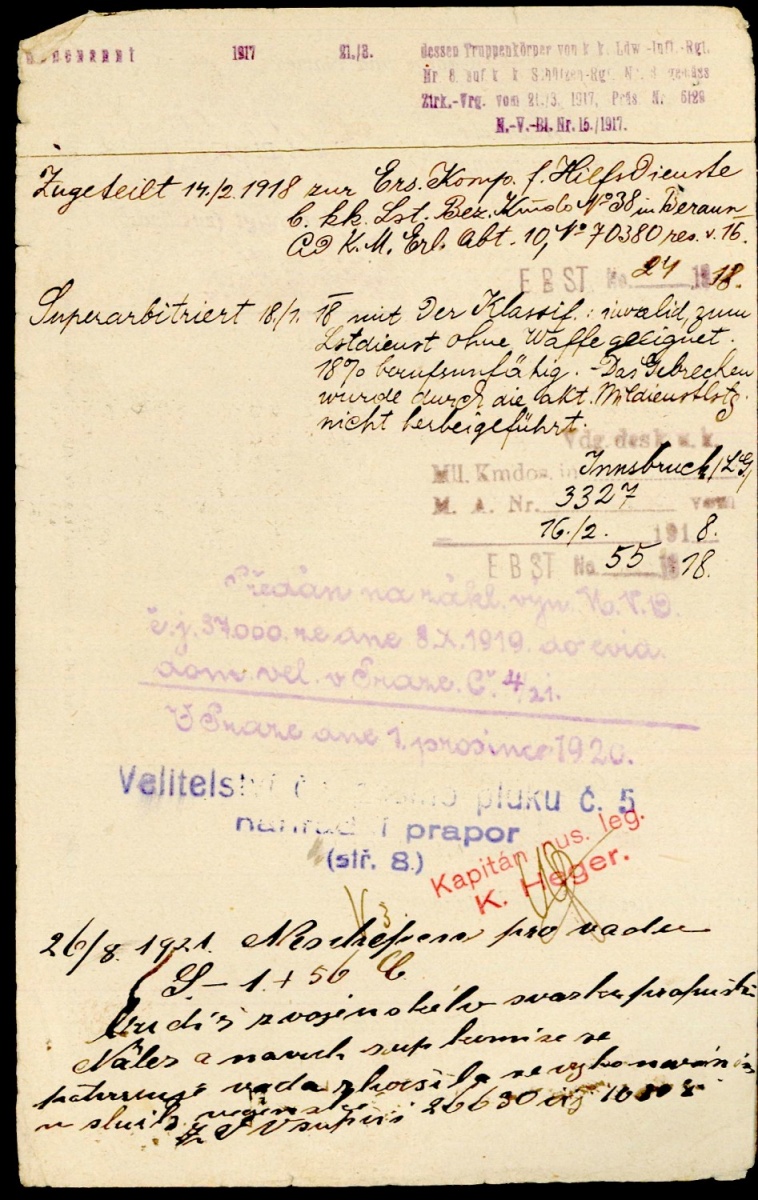 1917 21./3. dessen Truppenkörper von k. k. Ldw.-Inft.-Rgt.
Nr 8. auf k. k. Schützen-Rgt. Nr. 8 gemäss
Zirk.-Vrg. vom 21./3. 1917, Präs. Nr. 5129
N.-V.-Bl. Nr. 15./1917.
Zugeteilt 14./2. 1918 zur Ers. Komp. f. Hilfsdienste
b. kk. Lst. Bez. Kmdo Nº 38 in Beraun
K. M. Erl. Abt. 10, Nº 70380 res. v. 15.
EBST No. 24 1918.
Superarbitriert 18./1. 18 mit der Klassif.: invalid, zum
Lstdienst ohne Waffe geeignet.
18% berufsunfähig. - Das Gebrechen
wurde durch die akt. Mildienstlstg.
nicht herbeigeführt.
Vdg. des k. u. k.
Mil. Kmdos. in Innsbruck/LG/
M. A. Nr. 3327 vom
16./2. 1918.
EBST No. 55 1918.
Předán na zákl. výn. M.N.O.
č.j. 37.000. ze dne 8.X.1919. do evid.
dom. vel. v Praze. Č. 4/21.
V Praze dne 1. prosince 1920.
Velitelství pluku č. 5
náhradní prapor
(str. 8.)
Kapitán rus. leg.
K. Heger.
26/8. 1921. Neschopen pro vadu
S - 1 + 50 C
z vojenského svazku propustit
Nález a návrh sup komise se
potvrzuje vada
26630